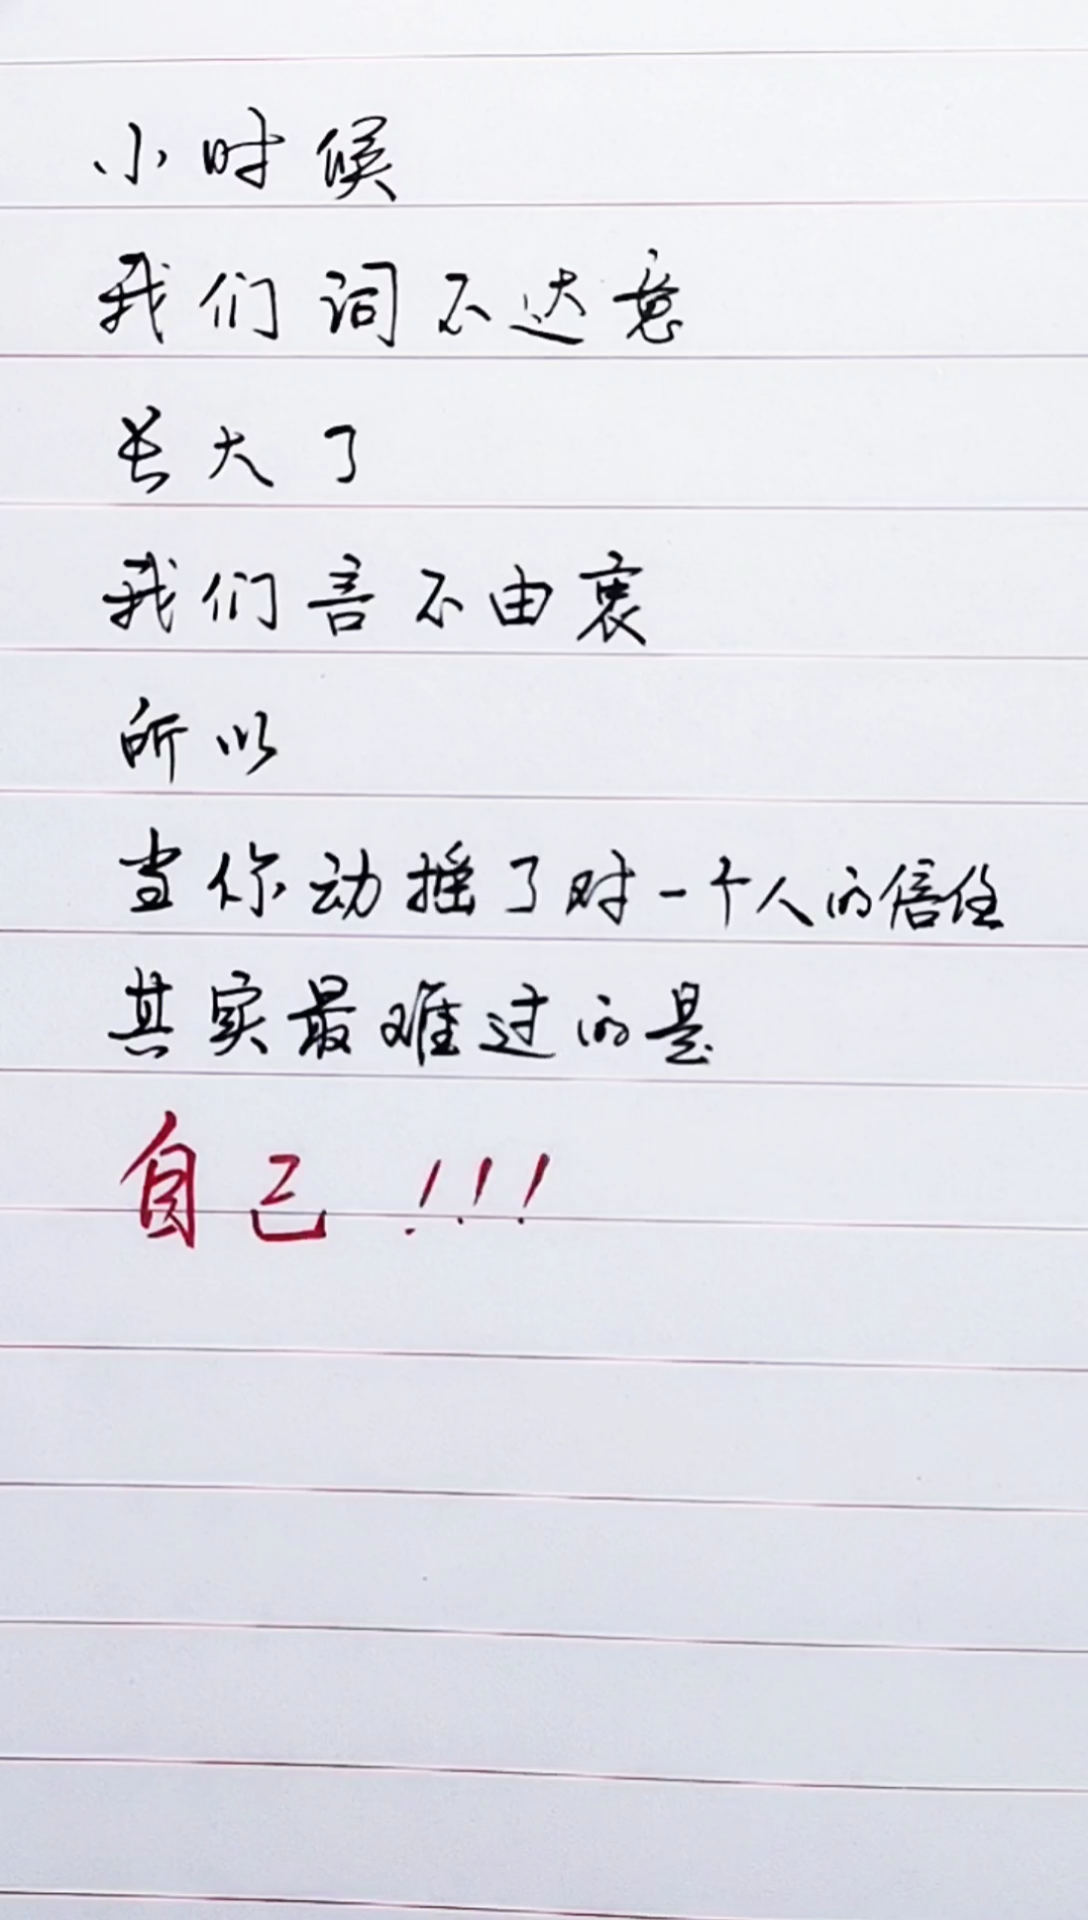 小时候
我们词不达意
长大了
我们言不由衷
所以
当你动摇了对一个人的信任
其实最难过的是
自己!!!